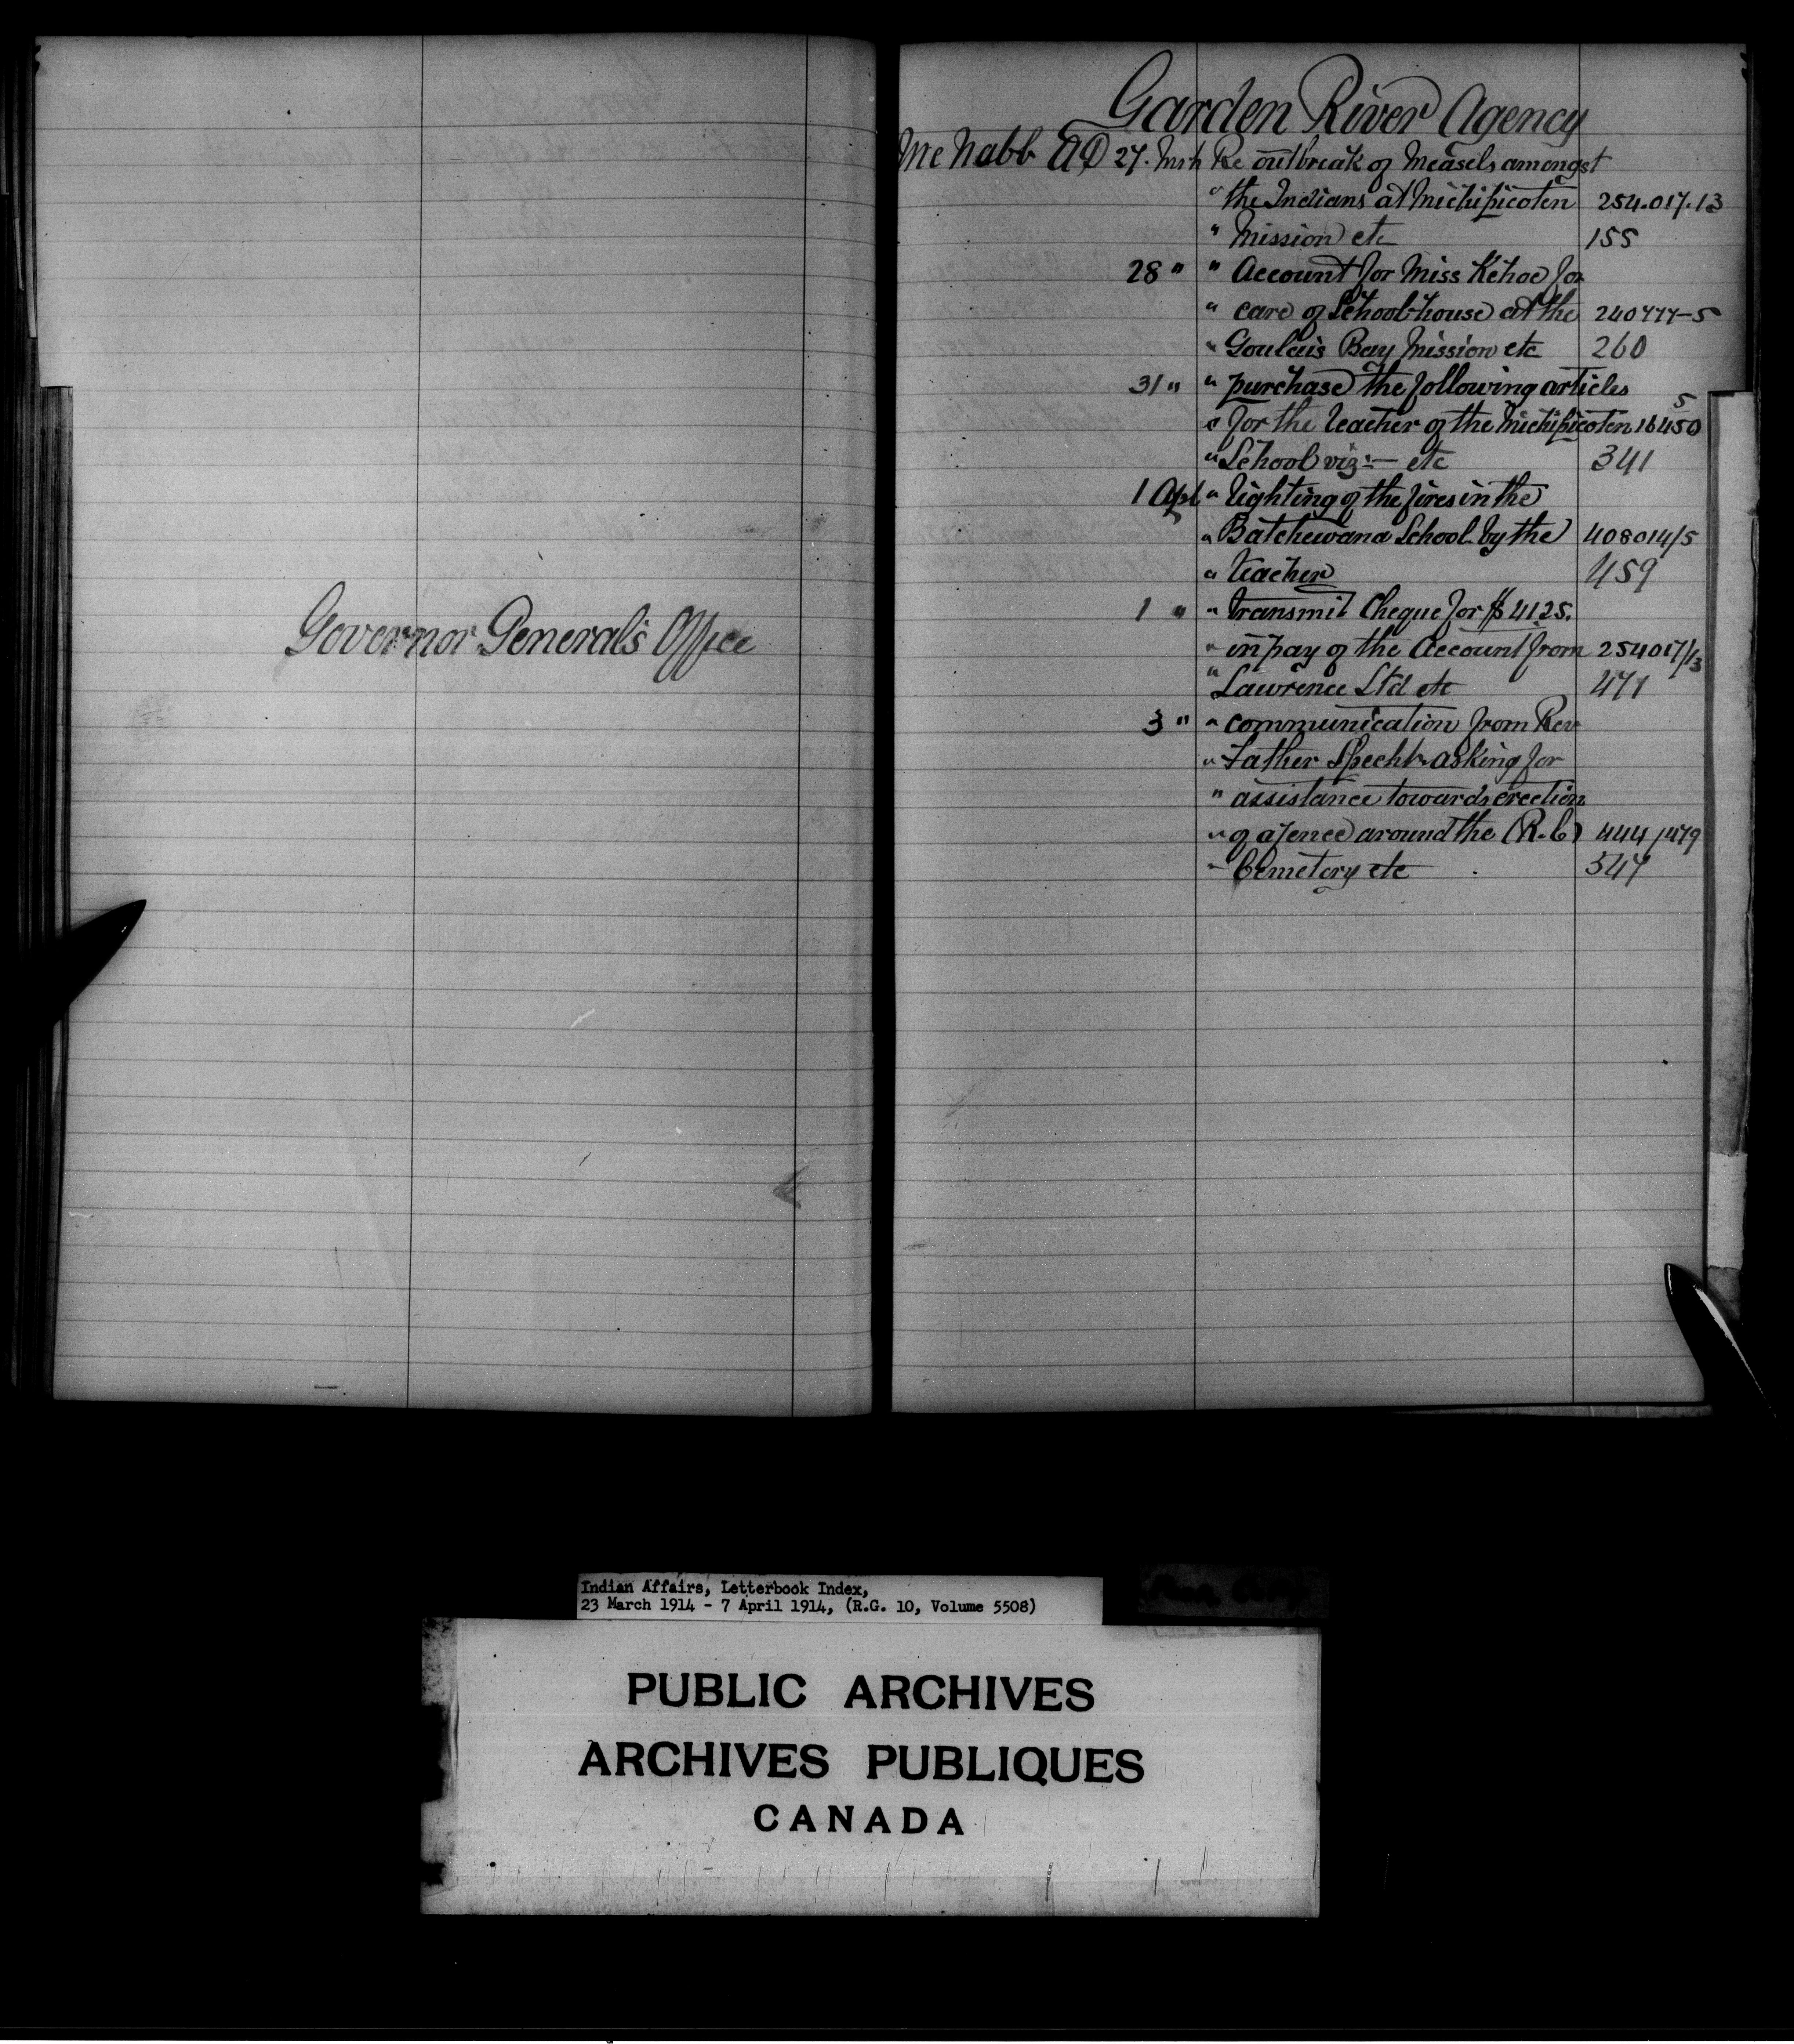 Governor General's Office
Garden River Agency
McNabb A D 27. Mrh Re outbreak of Measels amongst
" the Indians at Michipicoten 254.017.13
" Mission etc 155
28 " " Account for Miss Kehoe for
" care of School-house at the 240777-5
" Goulais Bay Mission etc 260
31 " " purchase the following articles
" for the teacher of the Michipicoten 16450 5
" School viz:- etc 341
1 Apl " lighting of the fires in the
" Batchewana School by the 408014/5
" teacher 459
1 " " transmit Cheque for $ 41 25.
" in pay of the Account from 254017/13
" Lawrence Ltd etc 471
3 " " communication from Rev
" Father Specht asking for
" assistance towards erection
" of a fence around the (R.C) 444/479
" Cemetory etc 547
Indian Affairs, Letterbook Index,
23 March 1914 - 7 April 1914, (R.G. 10, Volume 5508)
PUBLIC ARCHIVES
ARCHIVES PUBLIQUES
CANADA